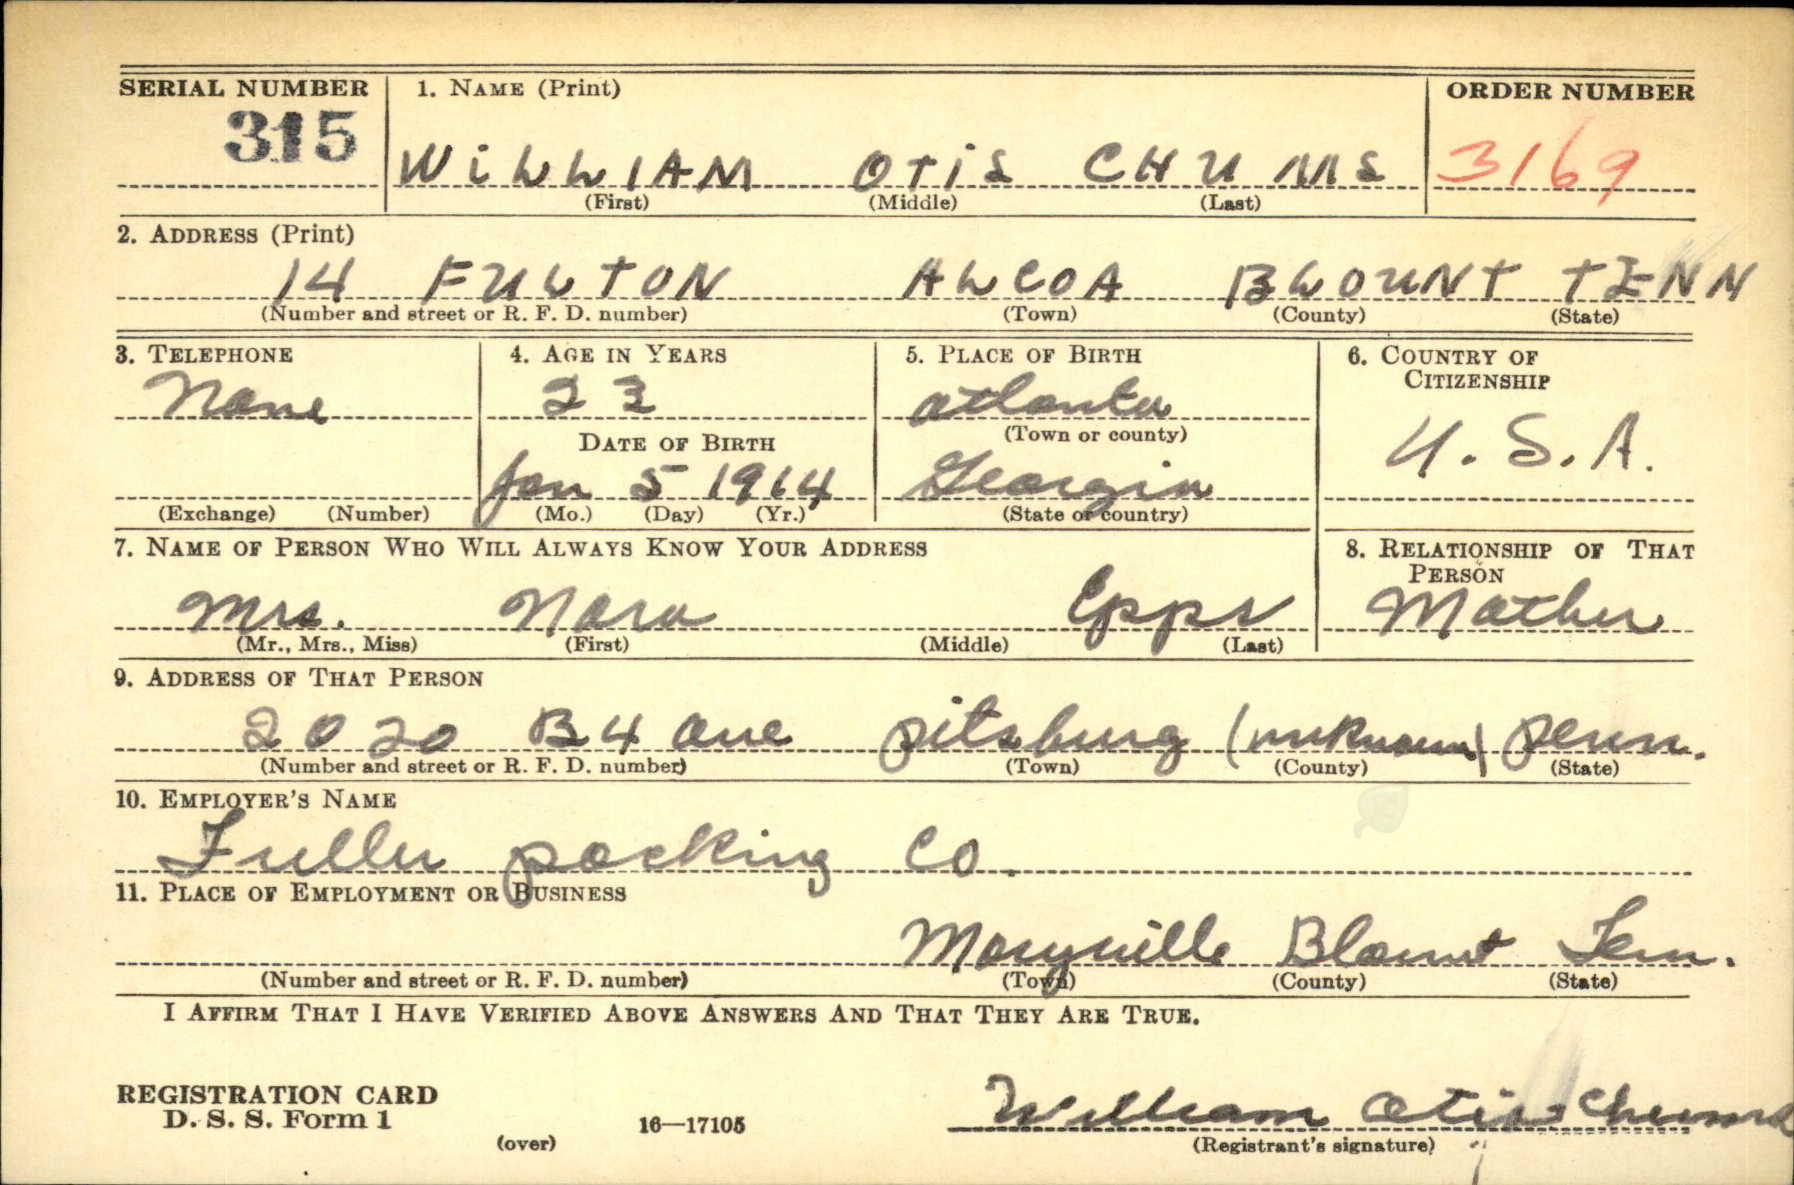 SERIAL NUMBER 1. NAME (Print) ORDER NUMBER
315 WiLLIAM OTiS CHUMS 3169
(First) (Middle) (Last)
2. ADDRESS (Print)
14 FULTON ALCOA BLOUNT TENN
(Number and street or R. F. D. number) (Town) (County) (State)
3. TELEPHONE 4. AGE IN YEARS 5. PLACE OF BIRTH 6. COUNTRY OF CITIZENSHIP
None 23 atlanta U. S. A.
DATE OF BIRTH (Town or county)
Jan 5 1914 Georgia
(Exchange) (Number) (Mo.) (Day) (Yr.) (State or country)
7. NAME OF PERSON WHO WILL ALWAYS KNOW YOUR ADDRESS 8. RELATIONSHIP OF THAT PERSON
Mrs. Nora Epps Mother
(Mr., Mrs., Miss) (First) (Middle) (Last)
9. ADDRESS OF THAT PERSON
2020 B4 ave pitsburg (unknown) penn.
(Number and street or R. F. D. number) (Town) (County) (State)
10. EMPLOYER'S NAME
Fuller packing Co.
11. PLACE OF EMPLOYMENT OR BUSINESS
Maryville Blount Tenn.
(Number and street or R. F. D. number) (Town) (County) (State)
I AFFIRM THAT I HAVE VERIFIED ABOVE ANSWERS AND THAT THEY ARE TRUE.
REGISTRATION CARD
D. S. S. Form 1 16—17105 William Otis Chums
(over) (Registrant's signature)